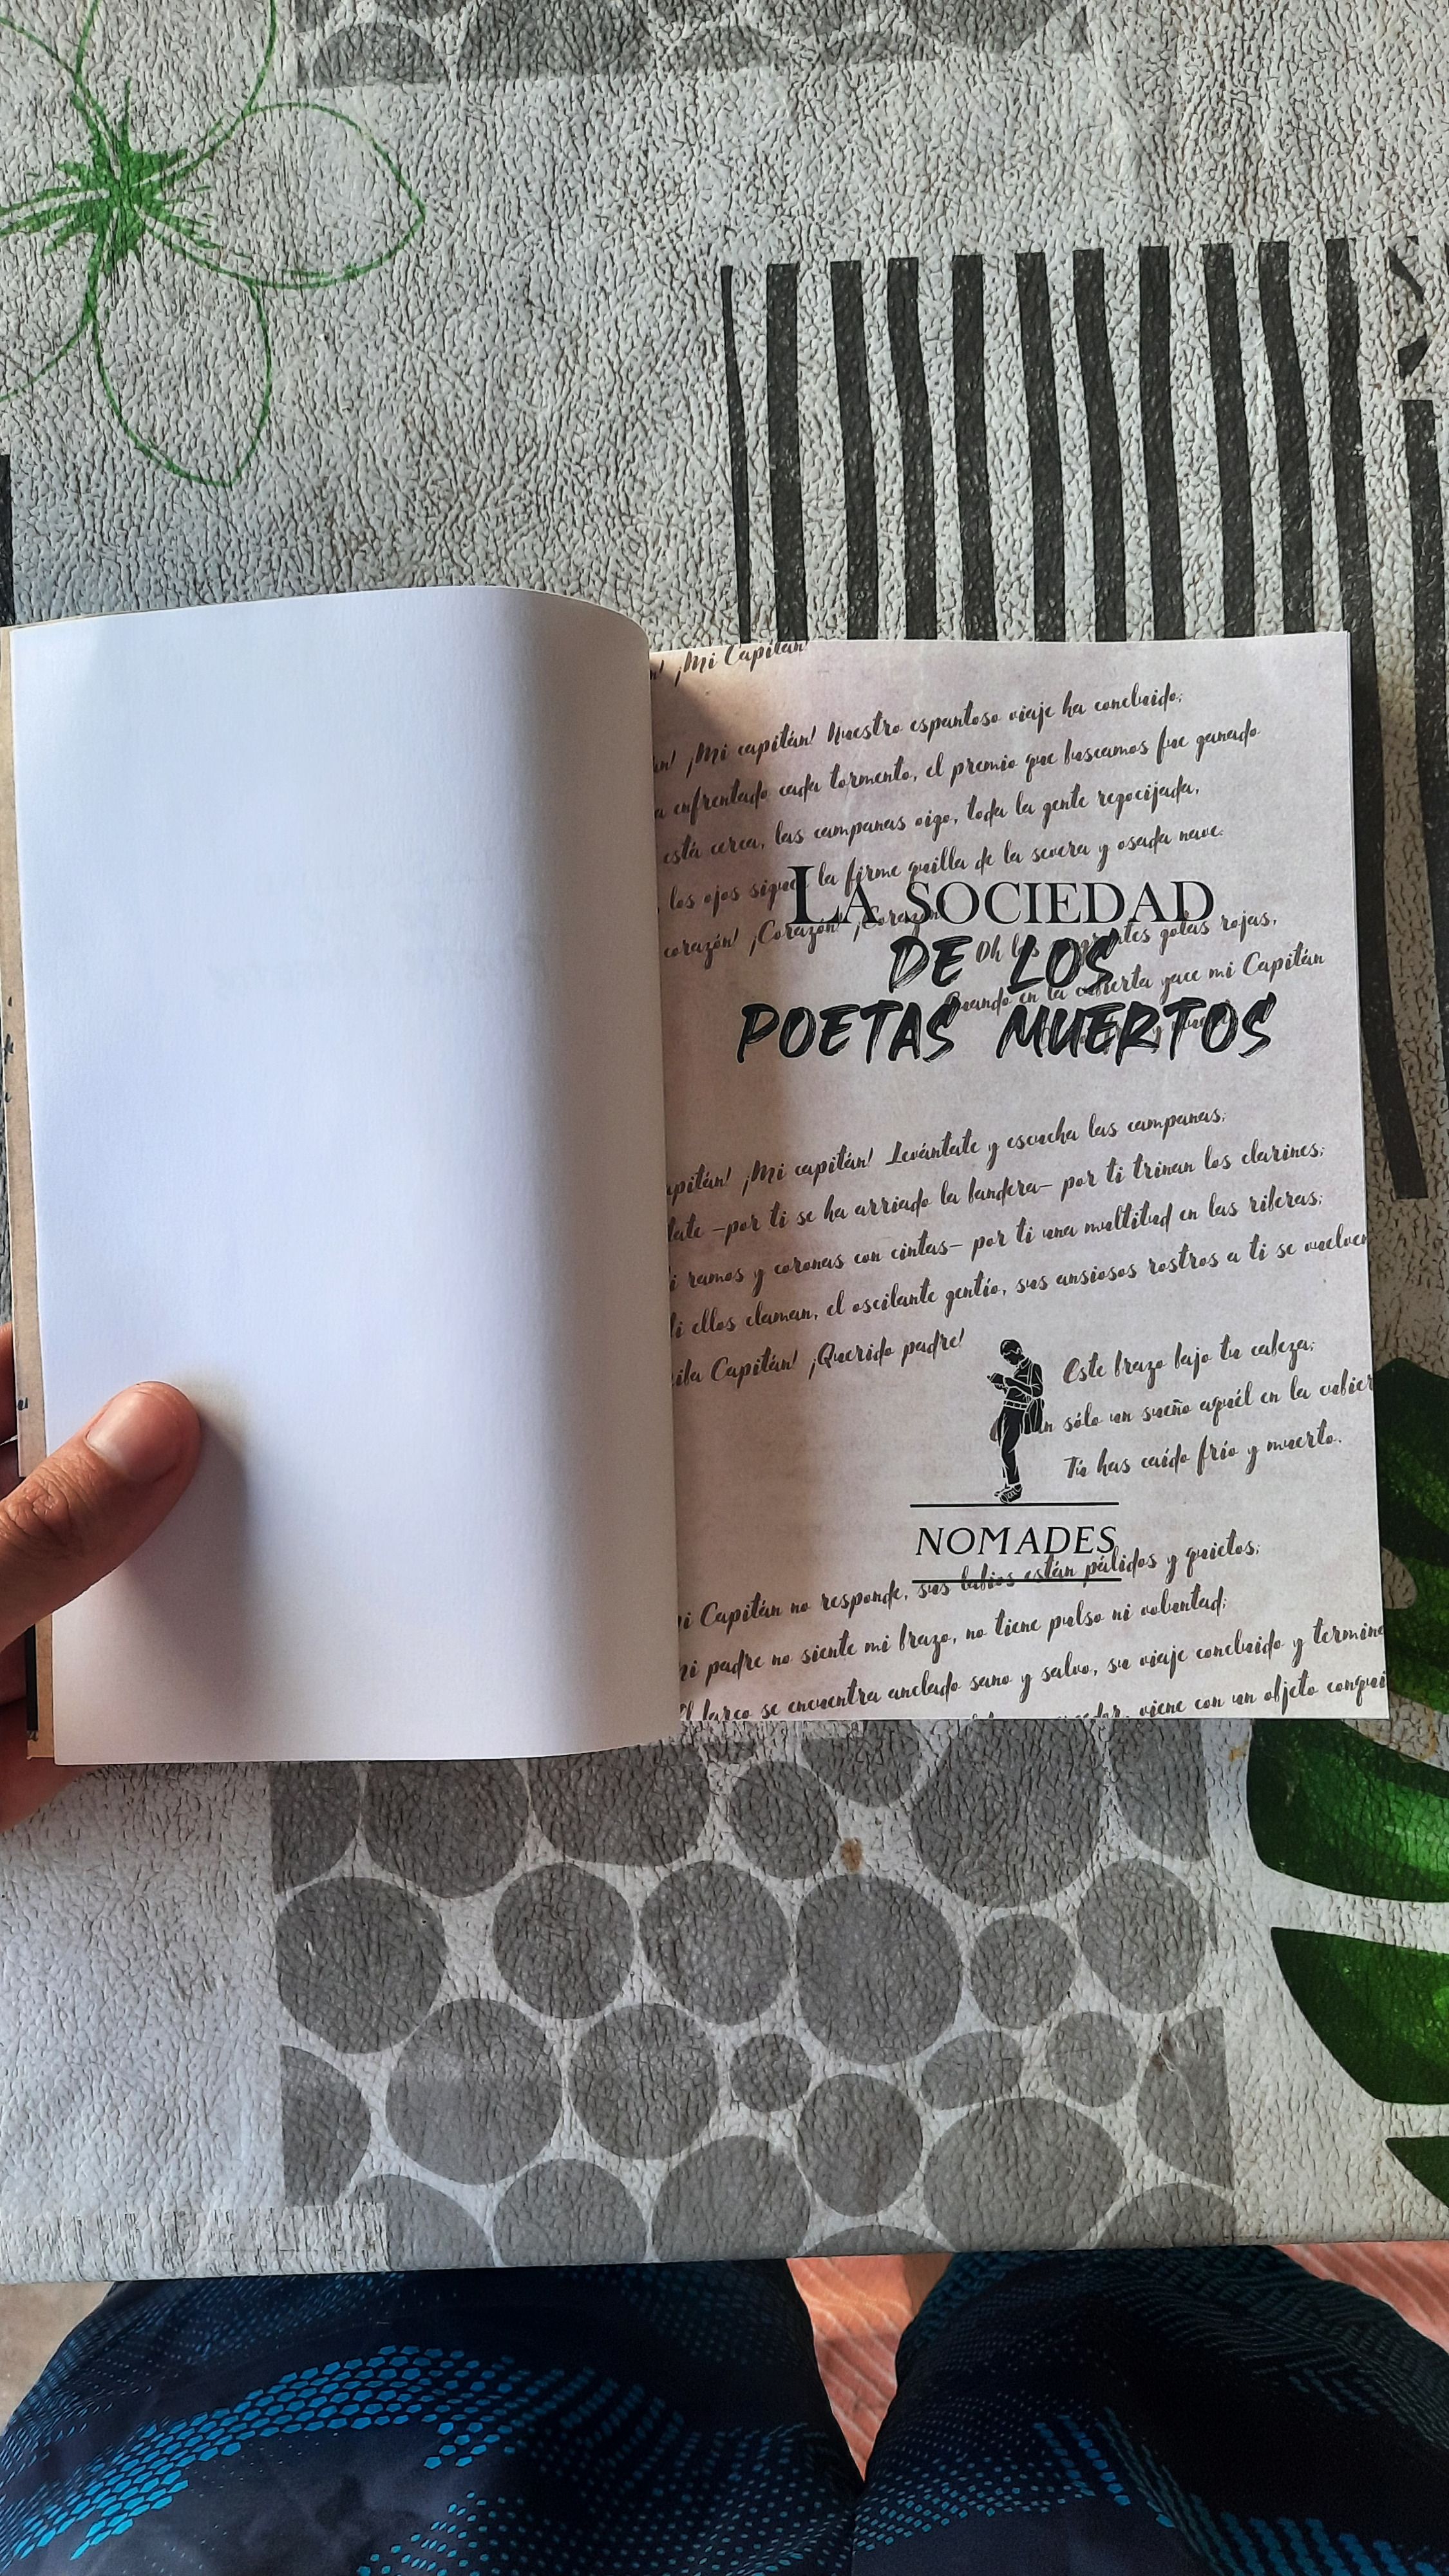 ¡Mi Capitán!
¡Mi capitán! Nuestro espantoso viaje ha concluido;
enfrentado cada tormento, el premio que buscamos fue ganado
está cerca, las campanas oigo, toda la gente regocijada,
los ojos siguen la firme quilla de la severa y osada nave.
LA SOCIEDAD
corazón! ¡Corazón! ¡Corazón
Oh las gotas rojas,
DE LOS
Cuando en la cubierta yace mi Capitán
POETAS MUERTOS
¡Mi capitán! Levántate y escucha las campanas;
–por ti se ha arriado la bandera– por ti trinan los clarines;
ramos y coronas con cintas– por ti una multitud en las riberas;
ellos claman, el oscilante gentío, sus ansiosos rostros a ti se vuelven
Capitán! ¡Querido padre!
Este brazo bajo tu cabeza;
sólo un sueño aquél en la
Tú has caído frío y muerto.
NOMADES
Capitán no responde, sus labios están pálidos y quietos;
padre no siente mi brazo, no tiene pulso ni voluntad;
barco se encuentra anclado sano y salvo, su viaje concluido y
viene con un objeto